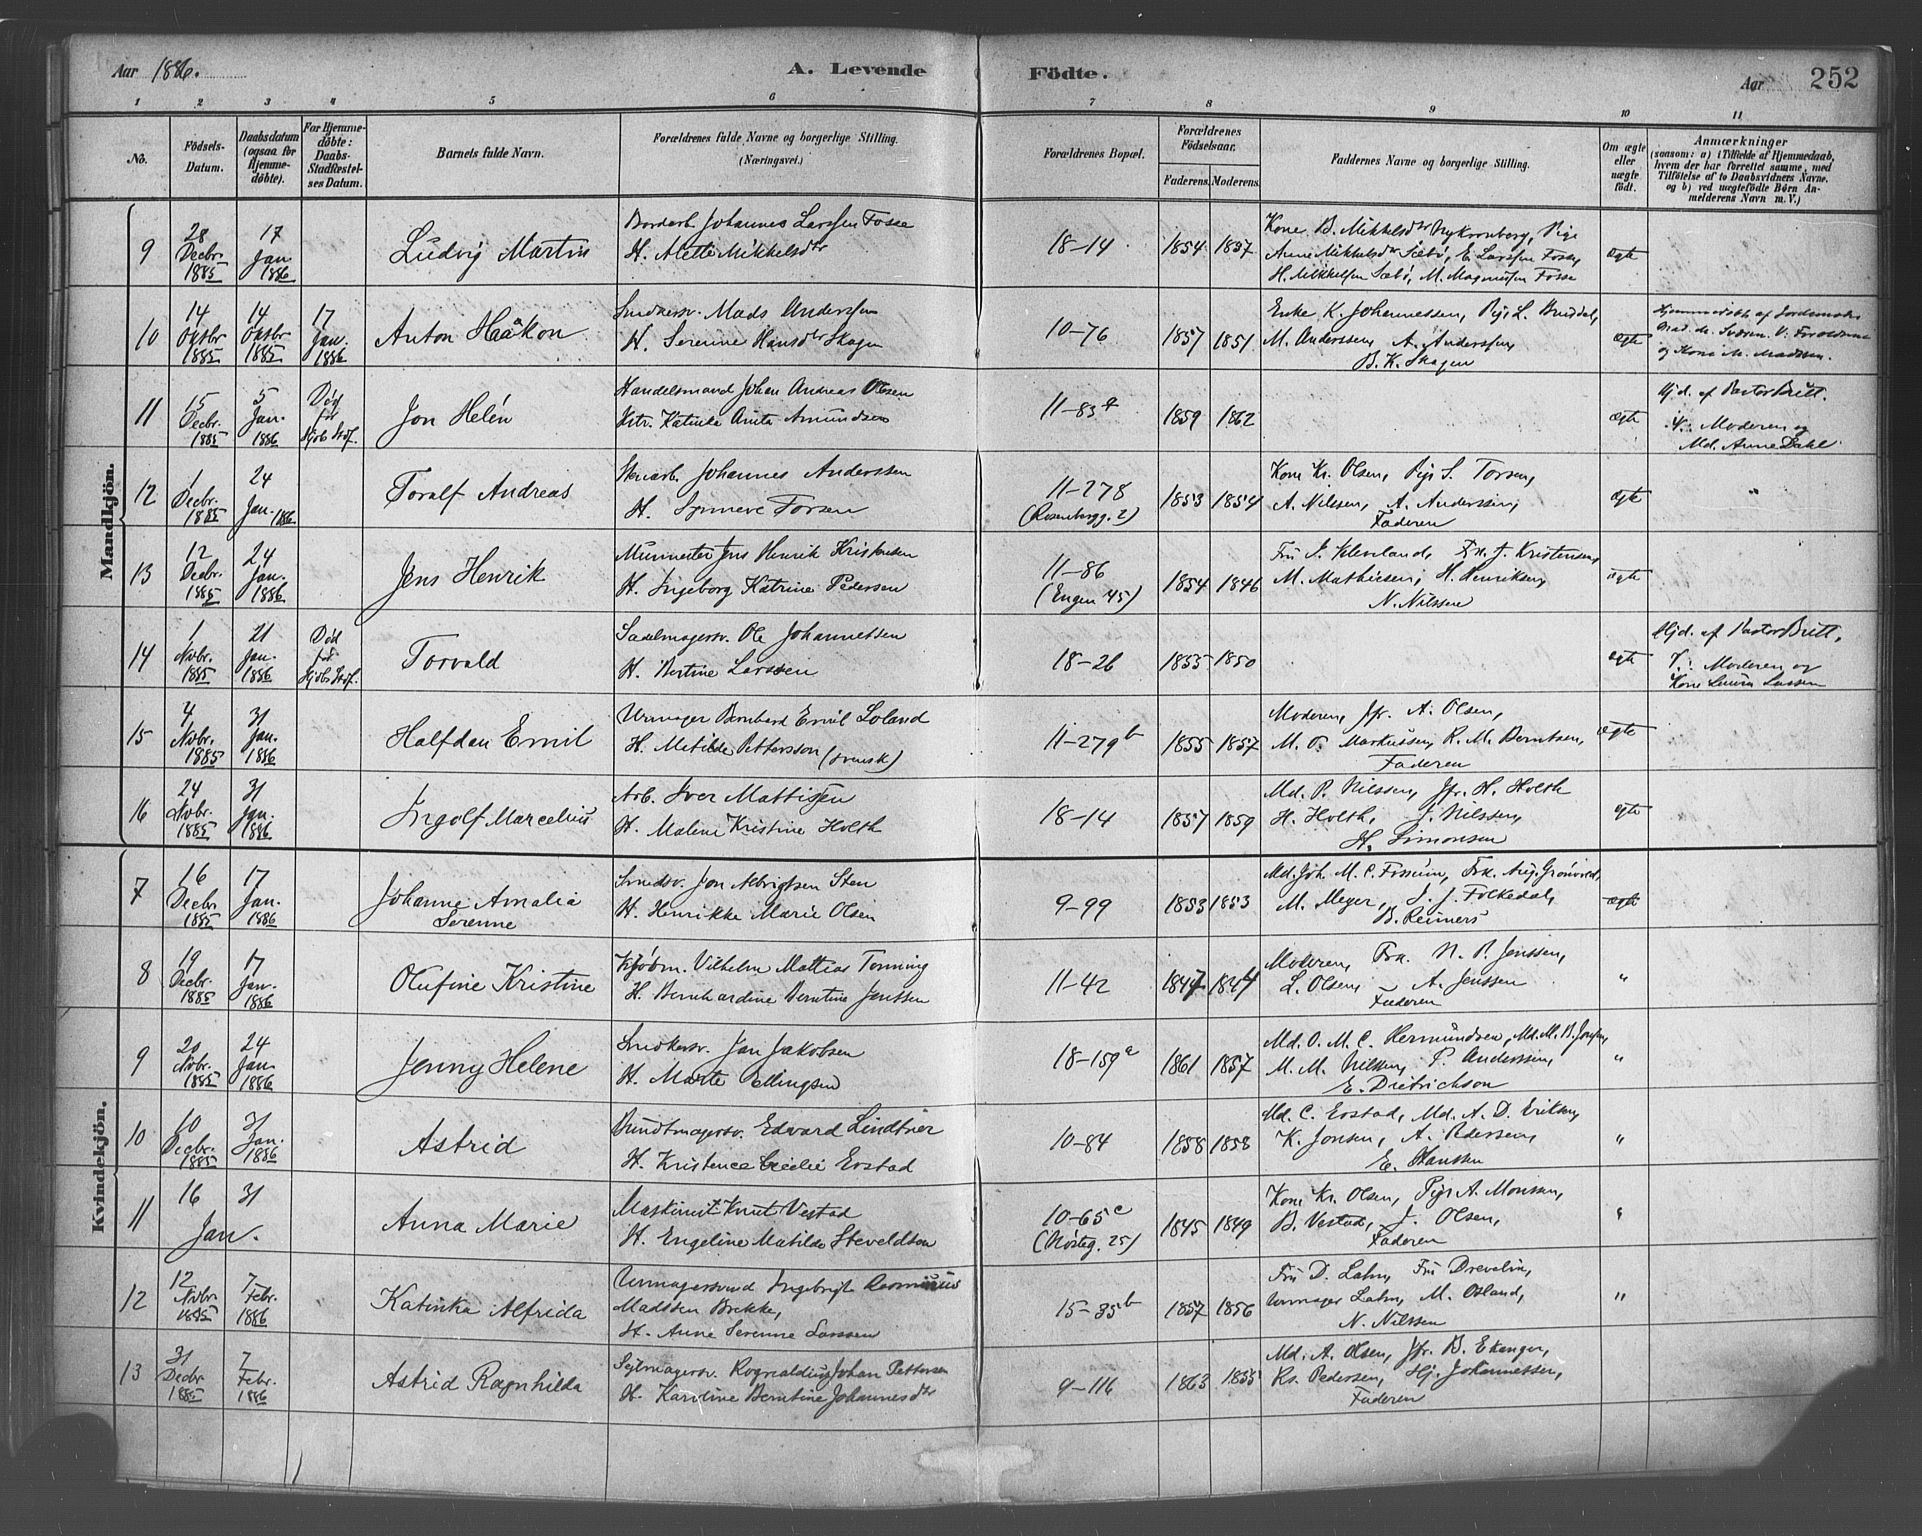 Aar 1886. A. Levende Födte. Aar 252
1 2 3 4 5 6 7 8 9 10 11
No.
Födsels-Datum.
Daabsdatum (ogsaa for Hjemme-döbte).
For Hjemme-döbte: Daabs-Stadfæstel-ses Datum.
Barnets fulde Navn.
Forældrenes fulde Navne og borgerlige Stilling. (Næringsvei.)
Forældrenes Bopæl.
Forældrenes Födselsaar.
Faderens. Moderens.
Faddernes Navne og borgerlige Stilling.
Om ægte eller uægte födt.
Anmærkninger
(saasom: a) i Tilfælde af Hjemmedaab, hvem der har forrettet samme, med Tilföielse af to Daabsvidners Navne. og b) ved uægtefödte Börn An-melderens Navn m. V.)
Mandkjön.
9 28 Decbr. 1885 17 Jan. 1886 Ludvig Martin
Bordarb. Johannes Larssen Fosse
H. Alette Mikkelsdtr
18-14 1854 1857
Kone B. Mikkelsdtr Nykronborg, Pige
Anne Mikkelsdtr Sæbö, E. Larssen Fosse,
H. Mikkelsen Sæbö, M. Magnussen Fosse
ægte
10 14 Oktbr. 1885 14 Oktbr. 1885 17 Jan. 1886 Anton Haakon
Snedkersv. Mads Anderssen
H. Serenne Hansdtr Skagen
10-76 1857 1851
Enke K. Johannessen, Pige L. Bruddal,
M. Anderssen, A. Anderssen,
B. K. Skagen
ægte
Hjemmedöbt af Jordemoder
V. Forældrene
og Kone M. Madssen.
11 15 Decbr. 1885 5 Jan. 1886 Död för Hjdb. Stdf. Jon Helén
Handelsmand Johan Andreas Olsen
Hstr. Katinka Anita Amundsen
11-83a 1859 1862 ægte
Hjd. af Pastor Britt.
V.: Moderen og
Md. Anne Dahl
12 1 Decbr. 1885 24 Jan. 1886 Toralf Andreas
Stenarb. Johannes Anderssen
H. Synneve Torsen
11-278
(Rosenbergg. 2) 1853 1854
Kone Kr. Olsen, Pige S. Torsen,
A. Nilssen, A. Anderssen,
Faderen
ægte "
13 12 Decbr. 1885 24 Jan. 1886 Jens Henrik
Murmester Jens Henrik Kristensen
H. Ingeborg Katrine Pedersen
11-86
(Engen 45) 1854 1846
Fru J. Kleveland, Frk. J. Kristensen,
M. Mathiesen, H. Henriksen,
N. Nilssen
ægte
14 1 Novbr. 1885 21 Jan. 1886 Död för Hjdb. Stdf. Torvald
Sadelmagersv. Ole Johannessen
H. Bertine Larssen
18-26 1855 1850 ægte
Hjd. af Pastor Britt,
V.: Moderen og
Kone Laura Larssen
15 4 Novbr. 1885 31 Jan. 1886 Halfdan Emil
Urmager Bernhard Emil Loland
H. Matilde Pettersson (svensk)
11-279b 1855 1857
Moderen, Jfr. A. Olsen,
M. T. Markussen, R. M. Berntsen,
Faderen
ægte
16 24 Novbr. 1885 31 Jan. 1886 Ingolf Marcelius
Arb. Iver Mattissen
H. Maline Kristine Holth
18-14 1857 1859
Md. P. Nilssen, Jfr. H. Holth
H. Holth, J. Nilssen,
H. Simonsen
ægte
Kvindekjön.
7 16 Decbr. 1885 17 Jan. 1886 Johanne Amalia
Serenne
Smedsv. Jon Albrigtsen Sten
H. Henrikke Marie Olsen
9-99 1853 1853
Md. Joh. M. C. Fossum, Frk. Aug. Grönvold,
M. Meyer, J. J. Folkedal,
B. Reimers
ægte
8 19 Decbr. 1885 17 Jan. 1886 Olufine Kristine
Kjöbm. Vilhelm Mattias Tonning
H. Bernhardine Berntine Janssen
11-42 1847 1844
Moderen, Frk. N. P. Jenssen,
L. Olsen, A. Jenssen
Faderen
"
9 20 Novbr. 1885 24 Jan. 1886 Jenny Helene
Snedkersv. Jan Jakobsen
H. Marte Ellingsen
18-159a 1861 1857
Md. O. M. C. Hermundsen, Md. M. B. Jensen,
M. M. Nilssen, P. Anderssen,
E. Dietrichson
"
10 10 Decbr. 1885 31 Jan. 1886 Astrid
Bundtmagersv. Edvard Lindtner
H. Kristence Cecilie Evstad
10-84 1858 1858
Md. C. Evstad, Md. A. D. Eriksen,
K. Jonsen, A. Pedersen,
E. Hanssen
"
11 16 31 Jan. Anna Marie
Maskinist Knut Vestad
H. Engeline Matilde Steveldson
10-65c
(Nösteg. 25) 1845 1849
Kone Kr. Olsen, Pige A. Monssen,
B. Vestad, J. Olsen,
Faderen
"
12 12 Novbr. 1885 7 Febr. 1886 Katinka Alfrida
Urmagersvend Ingebrigt Rasmus
Madssen Brekke,
H. Anne Serenne Larssen
15-35b 1857 1856
Fru D. Lahn, Fru Drevelin,
Urmager Lahn, M. Osland,
N. Nilssen
"
13 31 Decbr. 1885 7 Febr. 1886 Astrid Ragnhilda
Seilmagersv. Rognvaldius Johan Pettersen
H. Karoline Berntine Johannesdtr
9-116 1863 1855
Md. A. Olsen, Jfr. B. Ekanger,
Rs. Pedersen, Hj. Johannessen,
Faderen